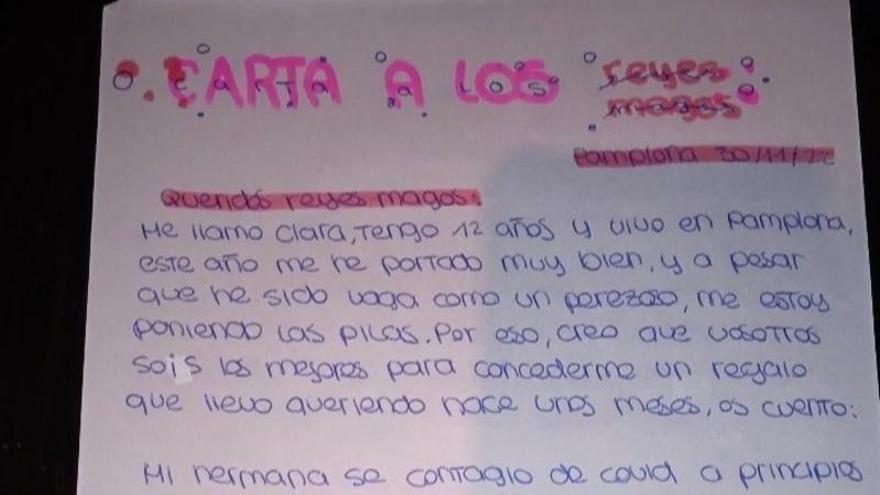 CARTA A LOS reyes
magos
Pamplona 30/11/22
Queridos reyes magos:
Me llamo Clara, Tengo 12 años y vivo en Pamplona,
este año me he portado muy bien, y a pesar
que he sido vaga como un perezoso, me estoy
poniendo las pilas. Por eso, creo que vosotros
sois los mejores para concederme un regalo
que llevo queriendo hace unos meses, os cuento:
Mi hermana se contagio de covid a principios